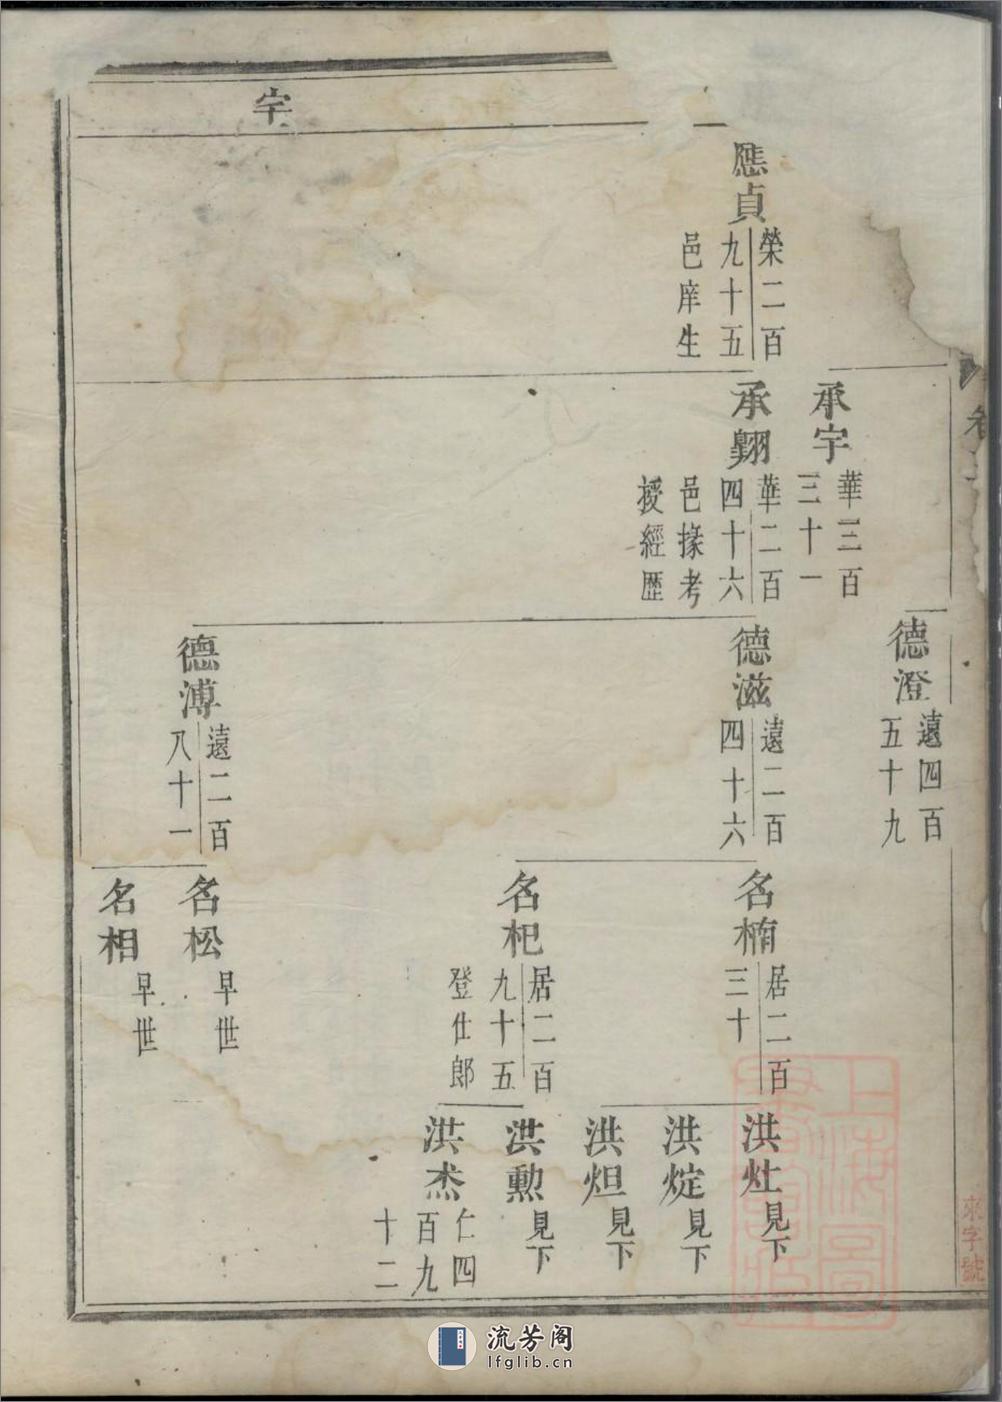 字
應貞
榮二百
九十五
邑庠生
承宇
華三百
三十一
承翺
華二百
四十六
邑掾考
授經歷
德澄
遠四百
五十九
德滋
遠二百
四十六
德溥
遠二百
八十一
名楕
居二百
三十
名杞
居二百
九十五
登仕郎
名松
早世
名相
早世
洪灶
見下
洪烶
見下
洪炟
見下
洪勳
見下
洪杰
仁四
百九
十二
來字號
流芳阁
lfglib.cn